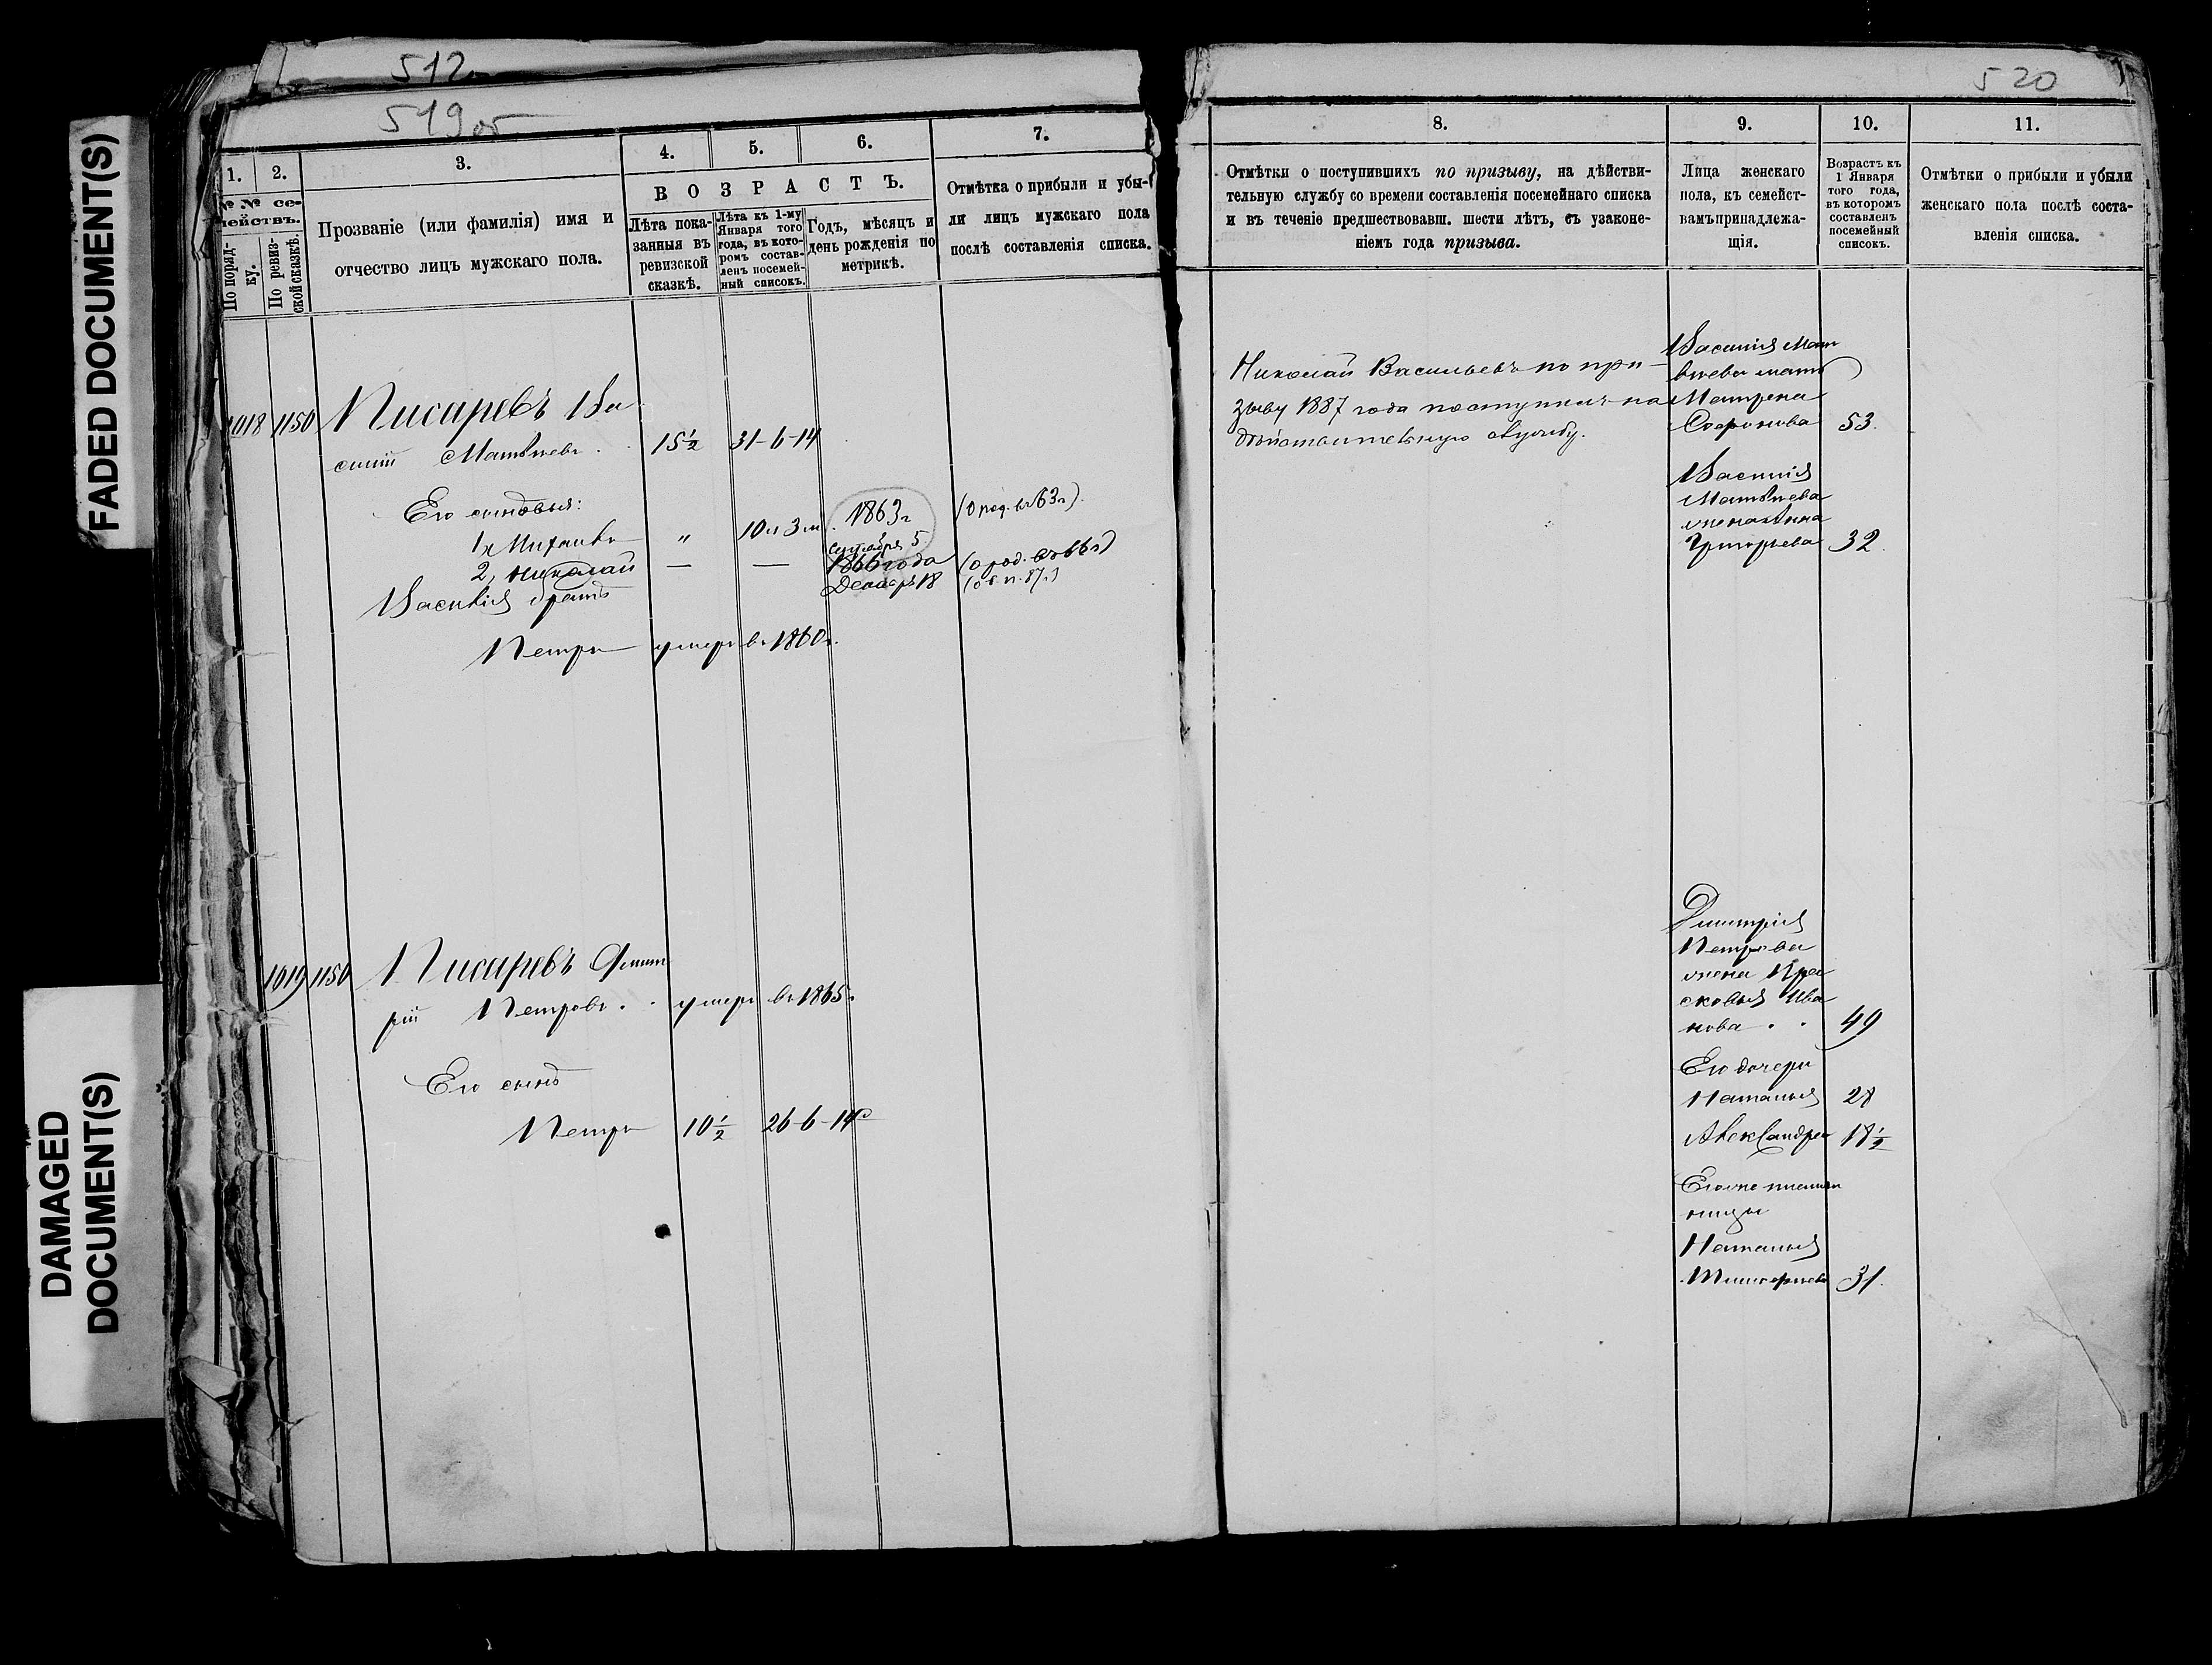 FADED DOCUMENT(S)
DAMAGED
DOCUMENT(S)
512
519 об
520
1.
2.
3.
4.
5.
6.
7.
№№ се-
мействъ.
По поряд-
ку.
По ревиз-
ской сказкѣ.
Прозваніе (или фамилія) имя и
отчество лицъ мужскаго пола.
ВОЗРАСТЪ.
Лѣта пока-
занныя въ
ревизской
сказкѣ.
Лѣта къ 1-му
Января того
года, въ кото-
ромъ состав-
ленъ посемей-
ный списокъ.
Годъ, мѣсяцъ и
день рожденія по
метрикѣ.
Отмѣтка о прибыли и убы-
ли лицъ мужскаго пола
послѣ составленія списка.
1018 1150 Писаревъ Ва
силій Матвѣевъ. 15½ 31-6-14
Его сыновья:
1, Михаилъ " 10 л 3 м 1863 г (О род. въ 63 г).
Сентября 5
2, Николай — — 1866 года (о род. въ 66 г)
Декабр 18
Василія братъ
Петръ умеръ въ 1860 г.
1019 1150 Писаревъ Дмит
рій Петровъ. . умеръ въ 1865 г.
Его сынъ
Петръ 10½ 26-6-14
8.
9.
10.
11.
Отмѣтки о поступившихъ по призыву, на дѣйстви-
тельную службу со времени составленія посемейнаго списка
и въ теченіе предшествовавш. шести лѣтъ, съ узаконе-
ніемъ года призыва.
Лица женскаго
пола, къ семейст-
вамъ принадлежа-
щія.
Возрастъ къ
1 Января
того года,
въ которомъ
составленъ
посемейный
списокъ.
Отмѣтки о прибыли и убыли
женскаго пола послѣ соста-
вленія списка.
Николай Васильевъ по при-
зыву 1887 года поступилъ на
дѣйствительную службу.
Василія Мат
вѣева мать
Матрена
Софронова 53.
Василія
Матвѣева
жена
Григорьева 32.
Дмитрія
Петрова
жена Пра
сковья Ива
нова . . 49
Его дочери
Наталья 28
Александра 18½
Его же племян
ницы
Наталья
31.